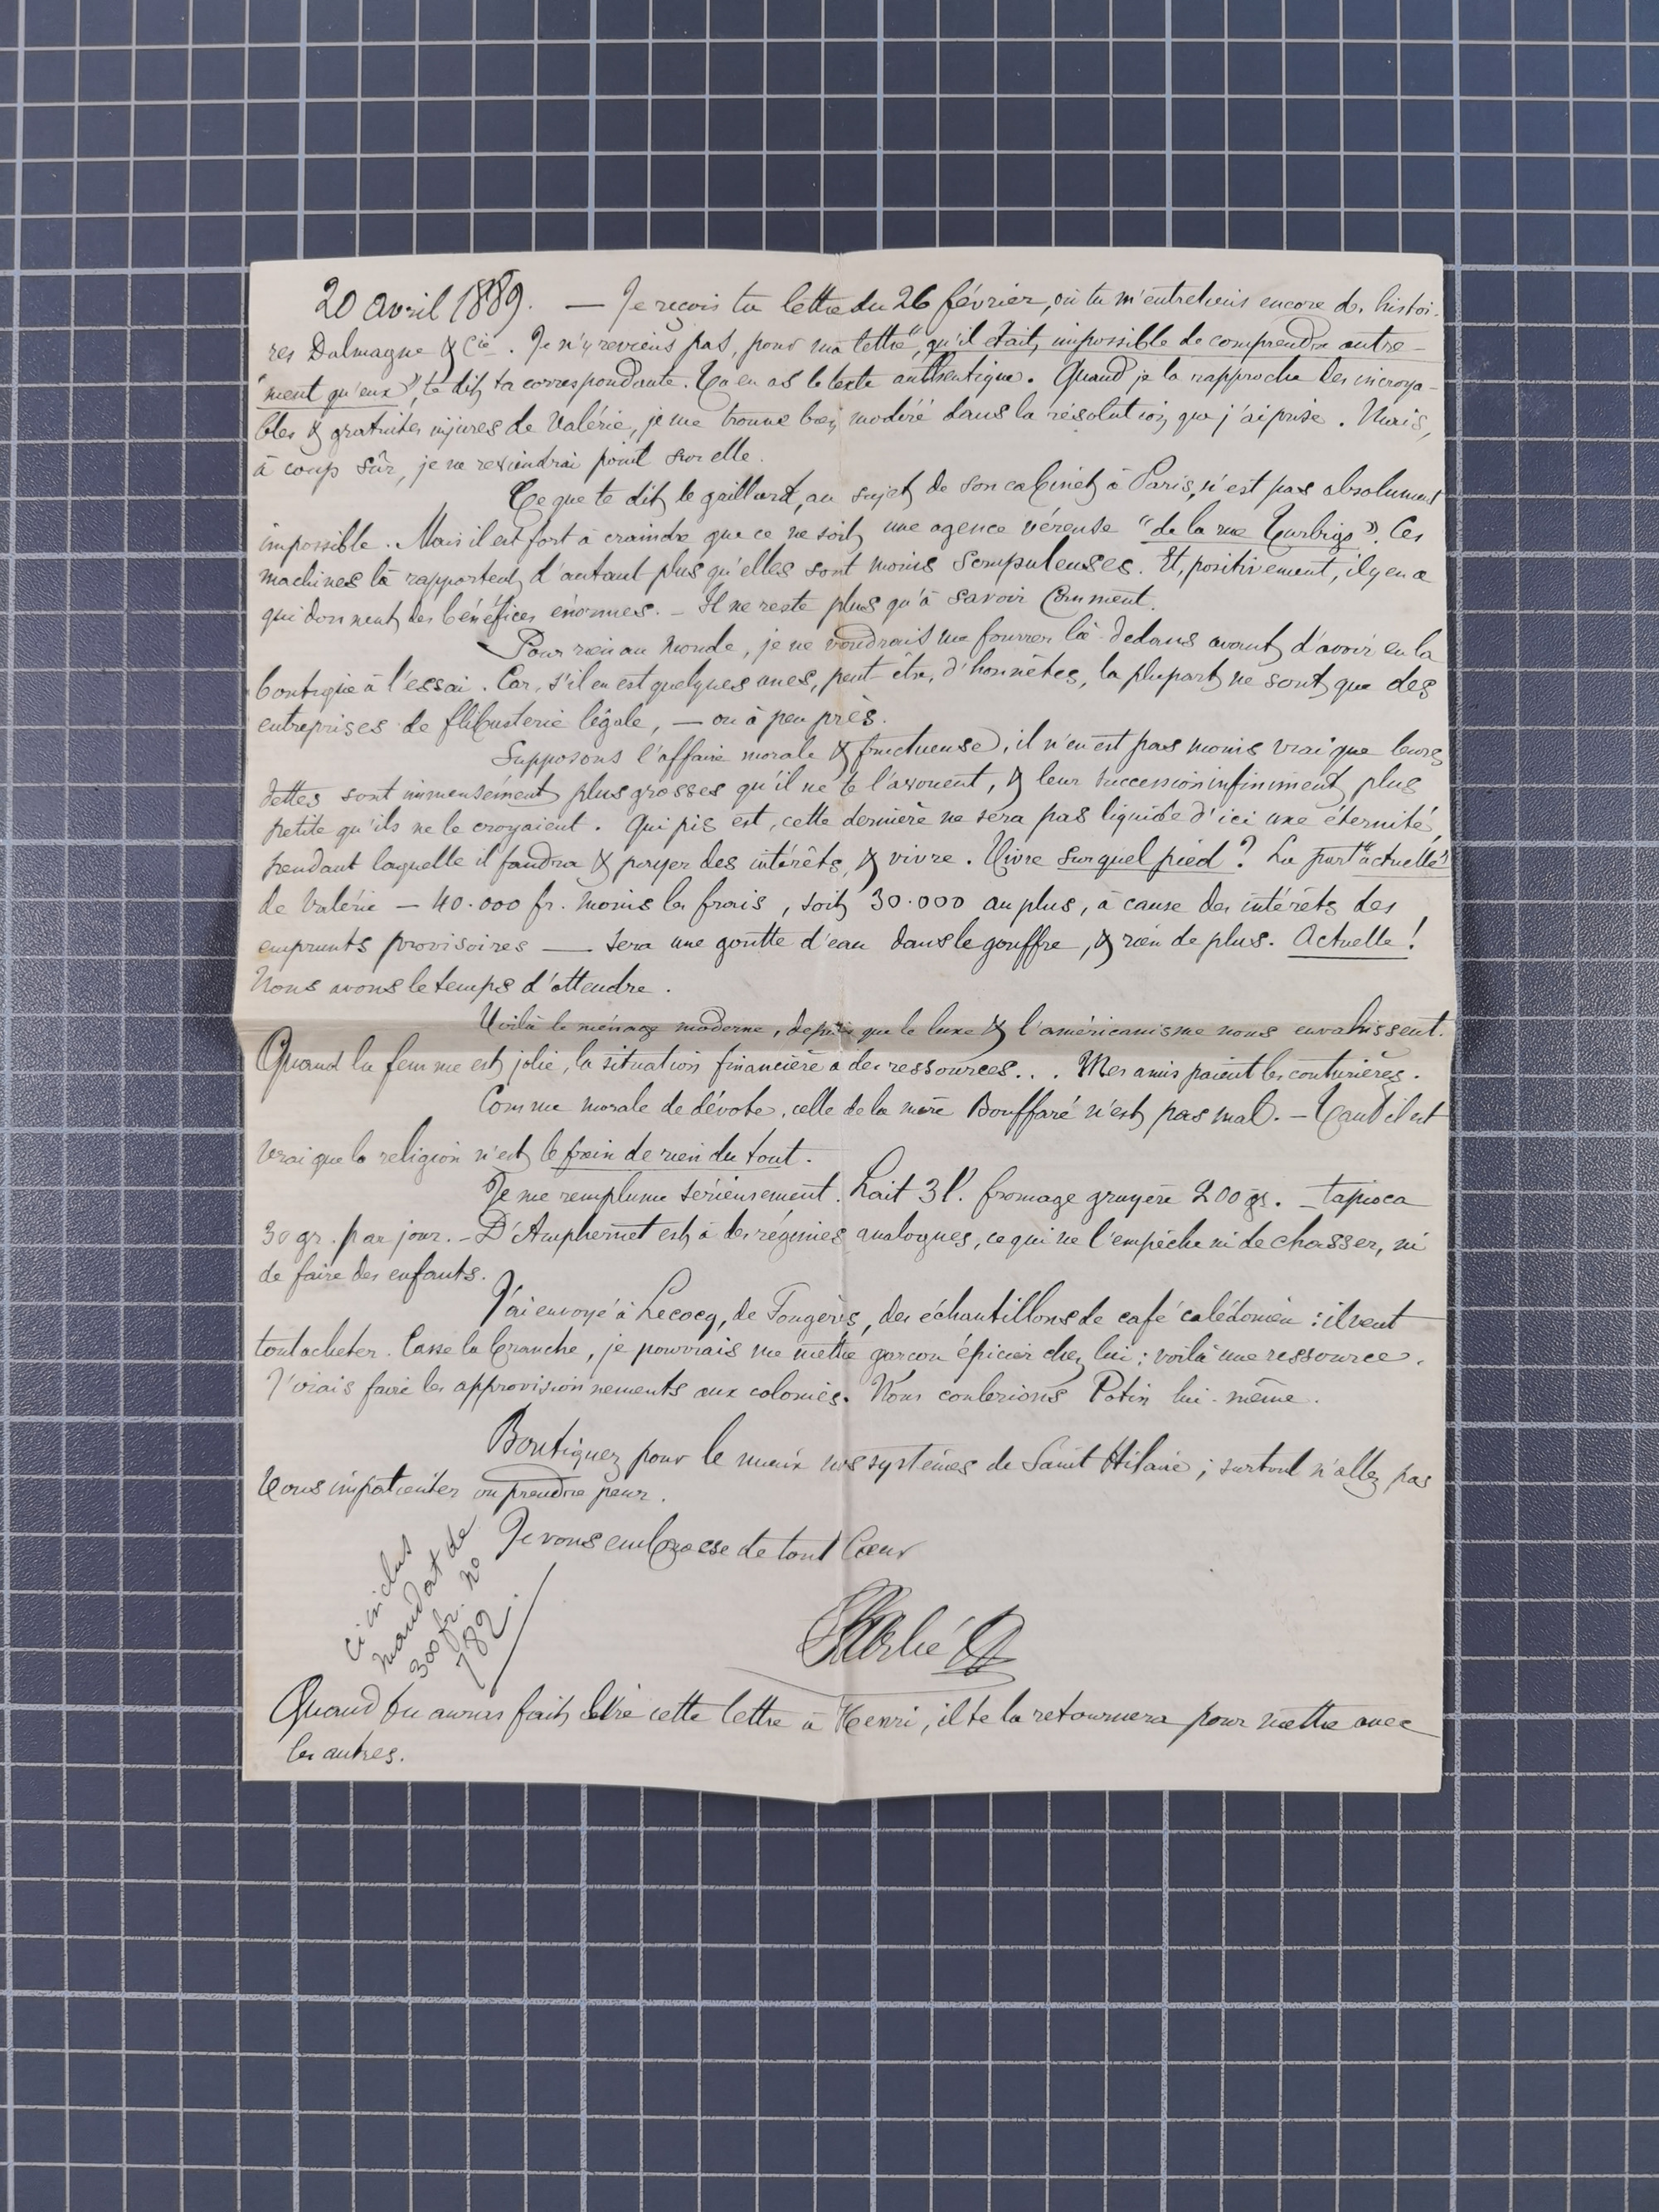 20 avril 1889. — Je reçois ta lettre du 26 février, où tu m'entretiens encore des histoi-
res Dalmagne & Cie. Je n'y reviens pas, pour ma lettre "qu'il était impossible de comprendre autre-
"ment qu'eux", te dit ta correspondante. Tu en as le texte authentique. Quand je la rapproche des incroya-
bles & gratuites injures de Valérie, je me trouve bien modéré dans la résolution que j'ai prise. Mais,
à coup sûr, je ne reviendrai point sur elle.
Ce que te dit le gaillard, au sujet de son cabinet à Paris, n'est pas absolument
impossible. Mais il est fort à craindre que ce ne soit une agence véreuse "de la rue Turbigo". Ces
machines là rapportent d'autant plus qu'elles sont moins scrupuleuses. Et, positivement, il y en a
qui donnent des bénéfices énormes. — Il ne reste plus qu'à savoir Comment.
Pour rien au monde, je ne voudrais me fourrer là-dedans avant d'avoir eu la
boutique à l'essai. Car, s'il en est quelques unes, peut-être, d'honnêtes, la plupart ne sont que des
entreprises de flibusterie légale, — ou à peu près.
Supposons l'affaire morale & fructueuse, il n'en est pas moins vrai que leurs
dettes sont immensément plus grosses qu'il ne te l'avouent, & leur succession infiniment plus
petite qu'ils ne le croyaient. Qui pis est, cette dernière ne sera pas liquidée d'ici une éternité,
pendant laquelle il faudra & payer des intérêts, & vivre. Vivre sur quel pied ? La part "actuelle"
de Valérie — 40.000 fr. moins les frais, soit 30.000 au plus, à cause des intérêts des
emprunts provisoires — sera une goutte d'eau dans le gouffre, & rien de plus. Actuelle !
Nous avons le temps d'attendre.
Voilà le ménage moderne, depuis que le luxe & l'américanisme nous envahissent.
Quand la femme est jolie, la situation financière a des ressources... Mes amis paient les couturières.
Comme morale de dévote, celle de la mère Bouffaré n'est pas mal. — Tant il est
vrai que la religion n'est le frein de rien du tout.
Je me remplume sérieusement. Lait 3 l. fromage gruyère 200 gs. — tapioca
30 gr. par jour. — D'Amphernet est à des régimes analogues, ce qui ne l'empêche ni de chasser, ni
de faire des enfants.
J'ai envoyé à Lecocq, de Fougères, des échantillons de café calédonien : il veut
tout acheter. Casse la branche, je pourrais me mettre garçon épicier chez lui : voilà une ressource.
J'irais faire les approvisionnements aux colonies. Nous coulerions Potin lui-même.
Boutiquez pour le mieux nos systèmes de Saint Hilaire ; surtout n'allez pas
vous impatienter ou prendre peur.
Je vous embrasse de tout Cœur
Ci inclus
mandat de
300 fr. no
782.
Quand tu auras fait lire cette lettre à Henri, il te la retournera pour mettre avec
les autres.